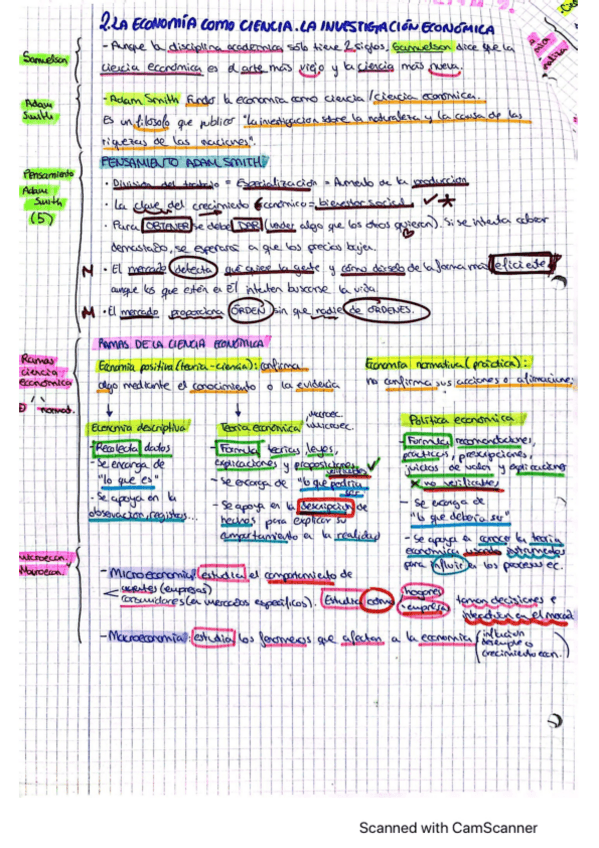 2. LA ECONOMÍA COMO CIENCIA. LA INVESTIGACIÓN ECONÓMICA
Samuelson
- Aunque la disciplina académica sólo tiene 2 siglos, Samuelson dice que la
ciencia económica es el arte más viejo y la ciencia más nueva.
Adam
Smith
- Adam Smith fundó la economía como ciencia / ciencia económica.
Es un filósofo que publicó "la investigación sobre la naturaleza y la causa de las
riquezas de las naciones".
Pensamiento
Adam
Smith
(5)
PENSAMIENTO ADAM SMITH
· División del trabajo = Especialización = Aumento de la producción
· La clave del crecimiento económico = bienestar social ✓*
· Para OBTENER se debe DAR (vender algo que los otros quieran). Si se intenta cobrar
demasiado, se esperará a que los precios bajen.
M · El mercado detecta qué quiere la gente y cómo dárselo de la forma más eficiente
aunque los que estén en El intenten buscarse la vida.
M · El mercado proporciona ÓRDEN sin que nadie de ORDENES.
Ramas
ciencia
económica
RAMAS DE LA CIENCIA ECONÓMICA
Economía positiva (teoría-ciencia): confirma
algo mediante el conocimiento o la evidencia
Economía normativa (práctica):
no confirma sus acciones o afirmaciones
Economía descriptiva
- Recolecta datos
- Se encarga de
"lo que es"
- Se apoya en la
observación, registros...
Teoría económica
Macroec.
Microec.
- Formula teorías, leyes,
explicaciones y proposiciones
verificables ✓
- Se encarga de "lo que podría
ser"
- Se apoya en la descripción de
hechos para explicar su
comportamiento a la realidad
Política económica
- Formula recomendaciones,
prácticas, prescripciones,
juicios de valor y explicaciones
x no verificables
- Se encarga de
"lo que debería ser"
- Se apoya en conocer la teoría
económica usando instrumentos
para influir en los procesos ec.
Microecon.
Macroecon.
- Microeconomía: estudia el comportamiento de
agentes (empresas)
consumidores (en mercados específicos). Estudia cómo
hogares
· empresa
toman decisiones e
interactúan en el mercado
- Macroeconomía: estudia los fenómenos que afectan a la economía
inflación
desempleo o
crecimiento econ.
Scanned with CamScanner